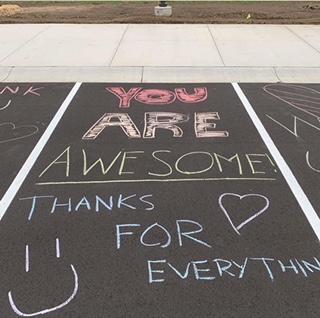 YOU
ARE
AWESOME!
THANKS
FOR
EVERYTHIN